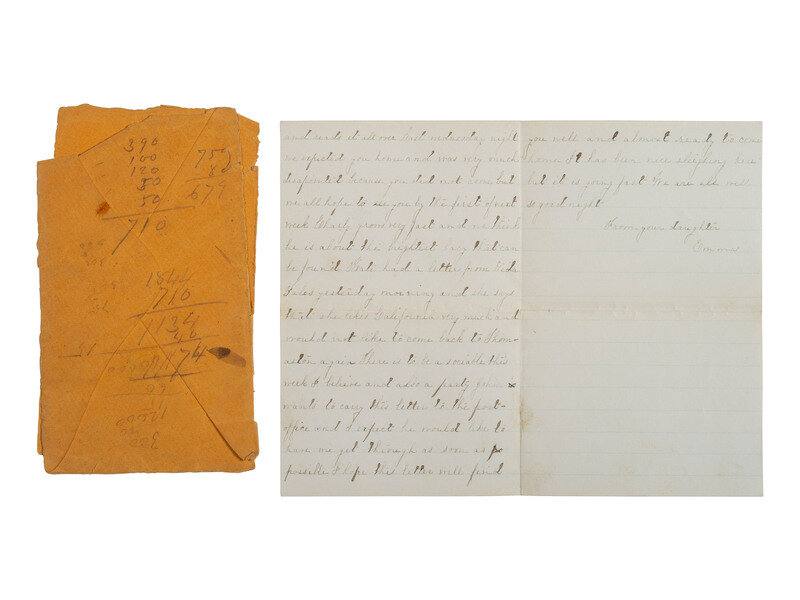 390
100
120
80
50
710
759
80
679
1844
710
1134
40
1174
and reads it all over Last wednesday night
we expected you home and was very much
disapointed because you did not come but
we all hope to see you by the first of next
week Charly grows very fast and we think
he is about the brightest boy that can
be found Kate had a letter from
yesterday morning and she says
that she likes California very much and
would not like to come back to Thom-
aston again There is to be a sociable this
week I believe and also a party John
wants to cary this letter to the post-
office and I expect he would like to
have me get through as soon as
possible I hope this letter will find
you well and almost ready to come
home It has been nice sleighing here
but it is going fast We are all well
so good night
From your daughter
Emma